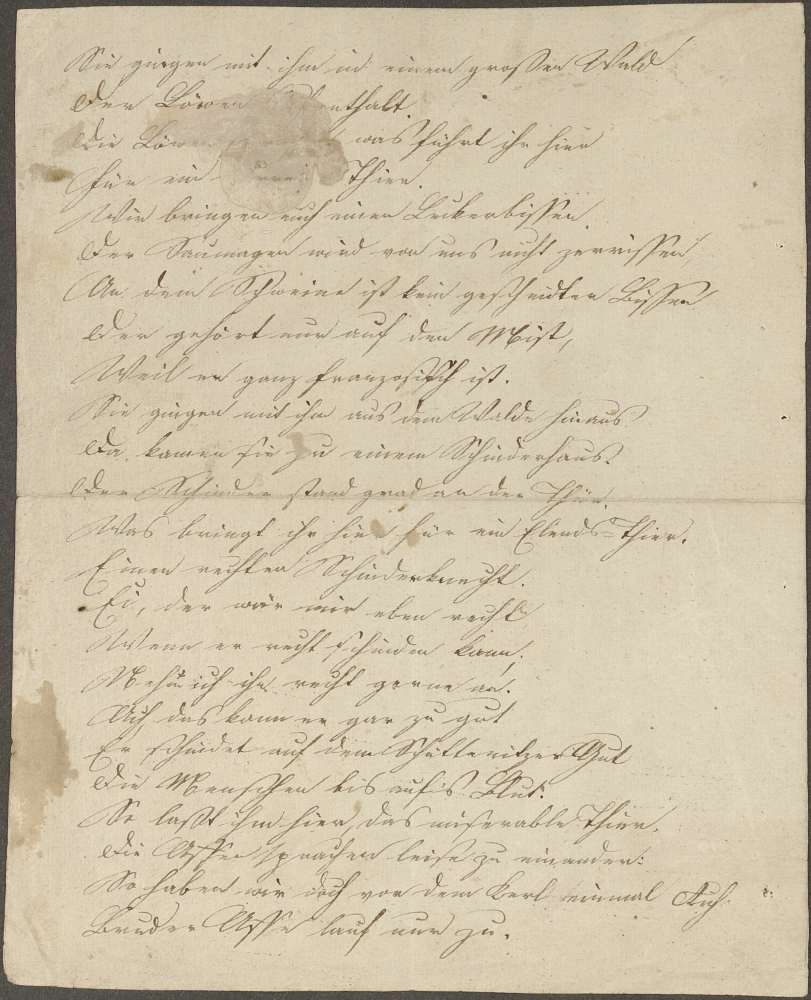 Sie gingen mit ihm in einen großen Wald
Der Löwen Aufenthalt.
Die Löwen was führt ihr hier
Für ein Thier.
Wir bringen euch einen Leckerbissen
Der Saumagen wird von uns nicht zerrissen,
An dem Schweine ist kein gescheidter Bissen
Der gehört nur auf den Mist,
Weil er ganz französisch ist.
Sie gingen mit ihm aus dem Walde hinaus.
Da kamen sie zu einem Schinderhaus.
Der Schinder stand grad an der Thür.
Was bringt ihr hier für ein Elends-Thier.
Einen rechten Schinderknecht.
Ei, der wär mir eben recht
Wenn er recht schinden kann,
Nehm ich ihn recht gerne an.
Ach das kann er gar zu gut
Er schindet auf dem Gut
Die Menschen bis auf's Blut.
So laßt ihm hier, das miserable Thier.
Die Affen sprachen leise zu einander:
So haben wir doch vor dem Kerl einmal Ruh.
Bruder Affe lauf nur zu.